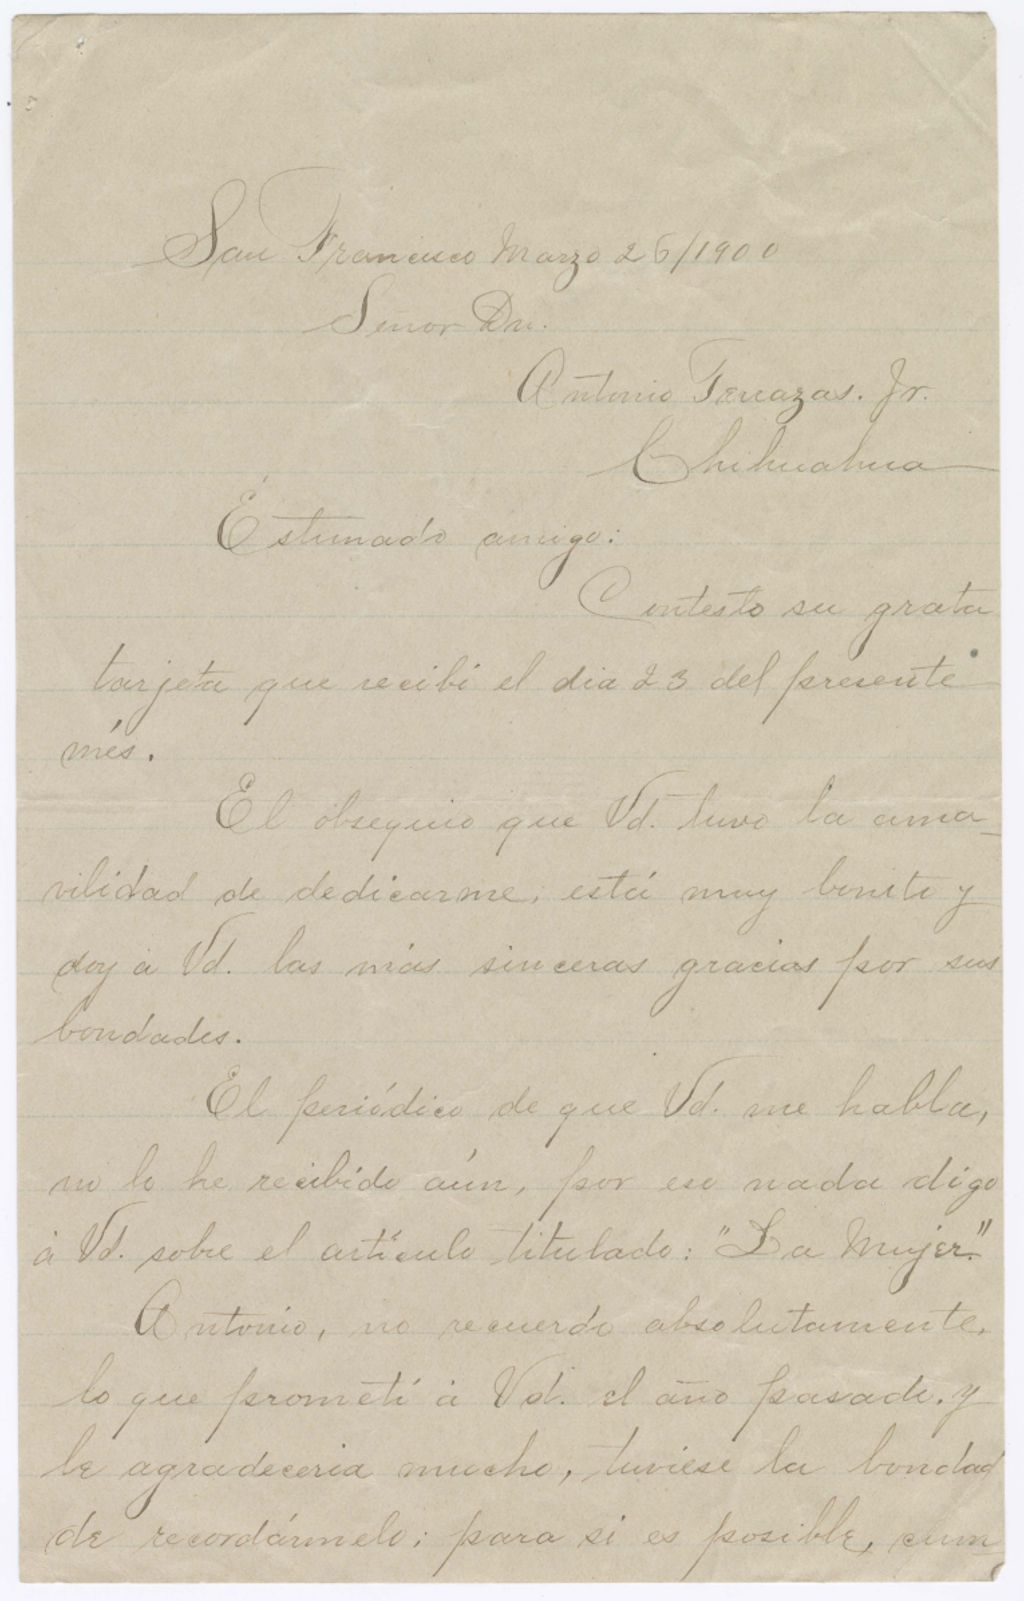 San Francisco Marzo 26/1900
Señor Dn.
Antonio Terrazas. Jr.
Chihuahua
Estimado amigo:
Contesto su grata
tarjeta que recibí el dia 23 del presente
més.
El obsequio que Vd. tuvo la ama-
vilidad de dedicarme, está muy bonito y
doy á Vd. las más sinceras gracias por sus
bondades.
El periódico de que Vd. me habla,
no lo he recibido aún, por eso nada digo
á Vd. sobre el artículo titulado: "La Mujer."
Antonio, no recuerdo absolutamente,
lo que prometí á Vd. el año pasado. y
le agradeceria mucho, tuviese la bondad
de recordármelo; para si es posible, cum-